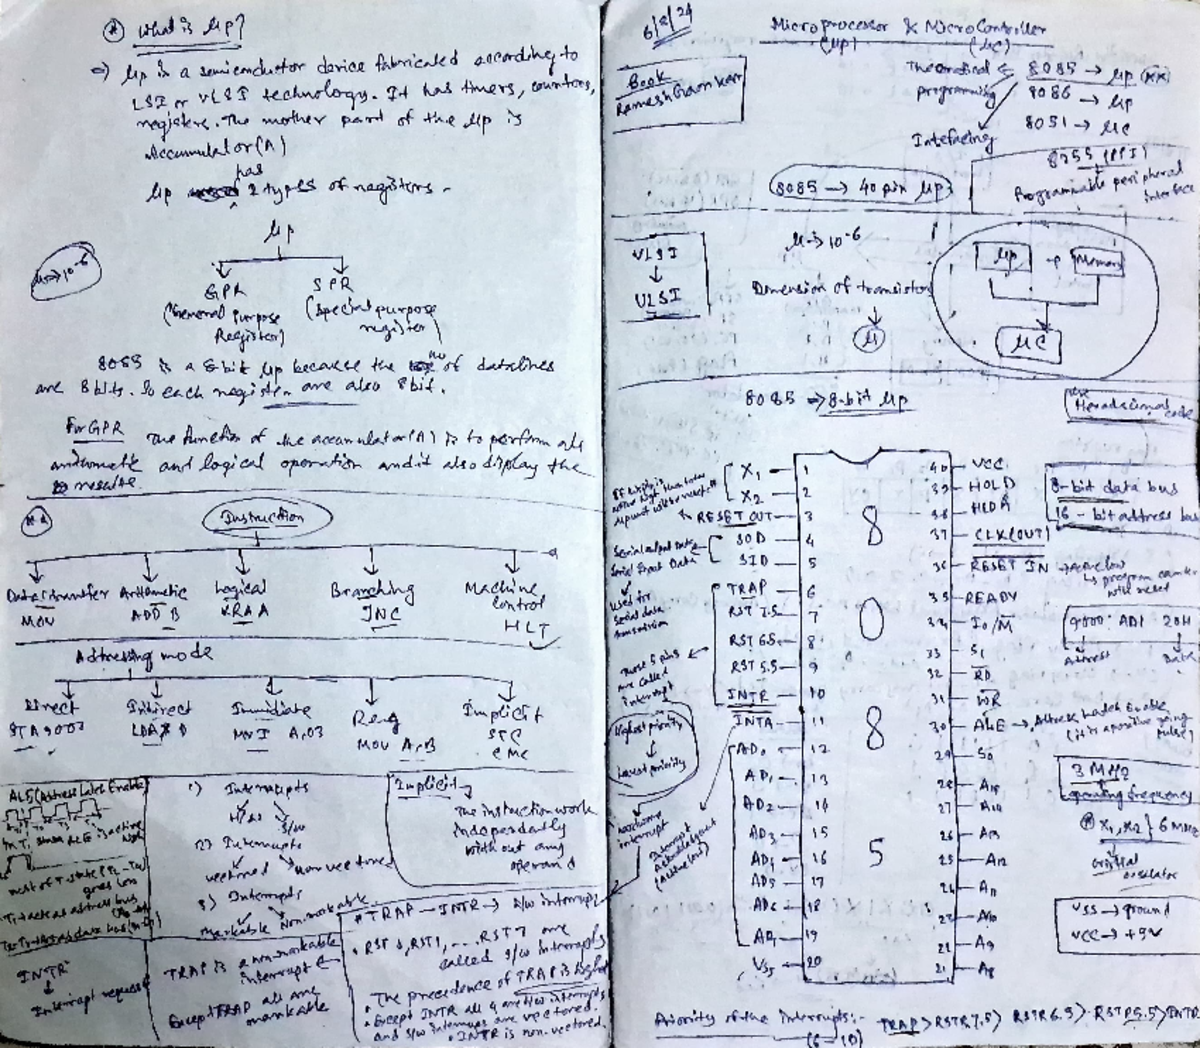 What is μp?
⇒ μp is a semiconductor device fabricated according to
LSI or VLSI technology. It has timers, counters,
registers. The mother part of the μp is
Accumulator(A)
has
μp 2 types of registers -
μp
μ→10-6
GPR SPR
(General purpose (Special purpose
Register) register)
8085 is a 8 bit μp because the no of datalines
are 8 bits. So each register are also 8 bit.
For GPR The function of the accumulator(A) is to perform all
arithmetic and logical operation and it also display the
result.
Instruction
Data transfer Arithmetic Logical Branching Machine
Control
MOV ADD B XRA A JNC HLT
Addressing mode
Direct Indirect Immediate Reg Implicit
STA 9000 LDAX D MVI A,03 MOV A,B STC
CMC
(Address Latch Enable)
INTR
↓
Interrupt request
1) Interrupts
H/W S/W
2) Interrupts
vectored non vectored
3) Interrupts
Maskable Non-maskable
TRAP is a non-maskable
interrupt
Except TRAP all are
maskable
Implicit
The instruction work
independently
without any
operand
* TRAP — INTR → H/W interrupt
called S/W interrupts
The precedence of TRAP is highest
• Except INTR all 4 are H/W interrupts
and S/W interrupts are vectored.
• INTR is non-vectored.
6/2/24
Microprocessor & MicroController
(μp) (μC)
Book
Ramesh Gaonkar
Theoretical
programming
Intefacing
8085 → μp
8086 → μp
8051 → μC
8255 (PPI)
Programmable peripheral
interface
8085 → 40 pin μp
VLSI
↓
ULSI
μ→10-6
Dimension of transistor
↓
μ
μp + Memory
μC
8085 → 8-bit μp
Hexadecimal code
8-bit data bus
16 - bit address bus
8
0
8
5
X1 1
X2 2
RESET OUT 3
SOD 4
SID 5
TRAP 6
RST 7.5 7
RST 6.5 8
RST 5.5 9
INTR 10
INTA 11
AD0 12
AD1 13
AD2 14
AD3 15
AD4 16
AD5 17
AD6 18
AD7 19
VSS 20
40 VCC
39 HOLD
38 HLDA
37 CLK(OUT)
36 RESET IN
35 READY
34 IO/M
33 S1
32 RD
31 WR
30 ALE → Address Latch Enable
(it is a positive going
pulse)
29 S0
28 A15
27 A14
26 A13
25 A12
24 A11
23 A10
22 A9
21 A8
Serial output Data
Serial Input Data
Used for
serial data
These 5 pins
are called
interrupt
Highest priority
↓
Lowest priority
Interrupt
(Active low)
→ Active low
↳ program counter
9000: AD1 20H
Address Data
3 MHz
operating frequency
X1, X2 } 6 MHz
crystal
oscillator
VSS → ground
VCC → +5V
Priority of the interrupts:-
(6-10)
TRAP > RST7.5 > RST6.5 > RST5.5 > INTR